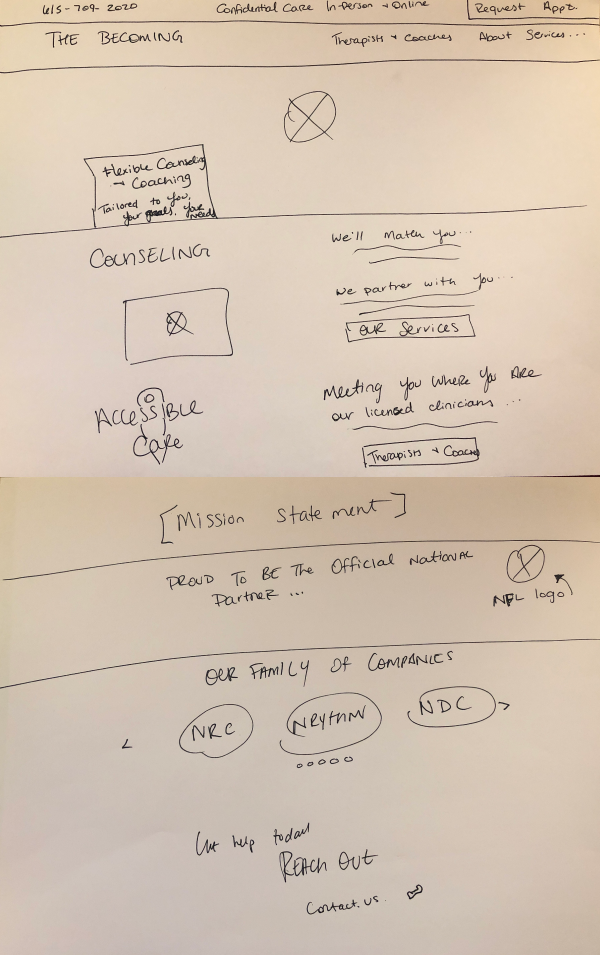 615-709-2020 Confidential Care In-Person + Online Request Appt.
THE BECOMING Therapists + Coaches About Services...
Flexible Counseling
+ Coaching
Tailored to you,
your goals, your needs
COUNSELING
We'll Match you...
We partner with you...
OUR Services
Meeting you where you are
our licensed clinicians...
ACCESSIBLE
Care
Therapists + Coaches
[Mission Statement]
PROUD TO BE The Official National
Partner ...
NFL logo
OUR FAMILY OF COMPANIES
< NRC NRYTHM NDC >
help today
REACH OUT
Contact us